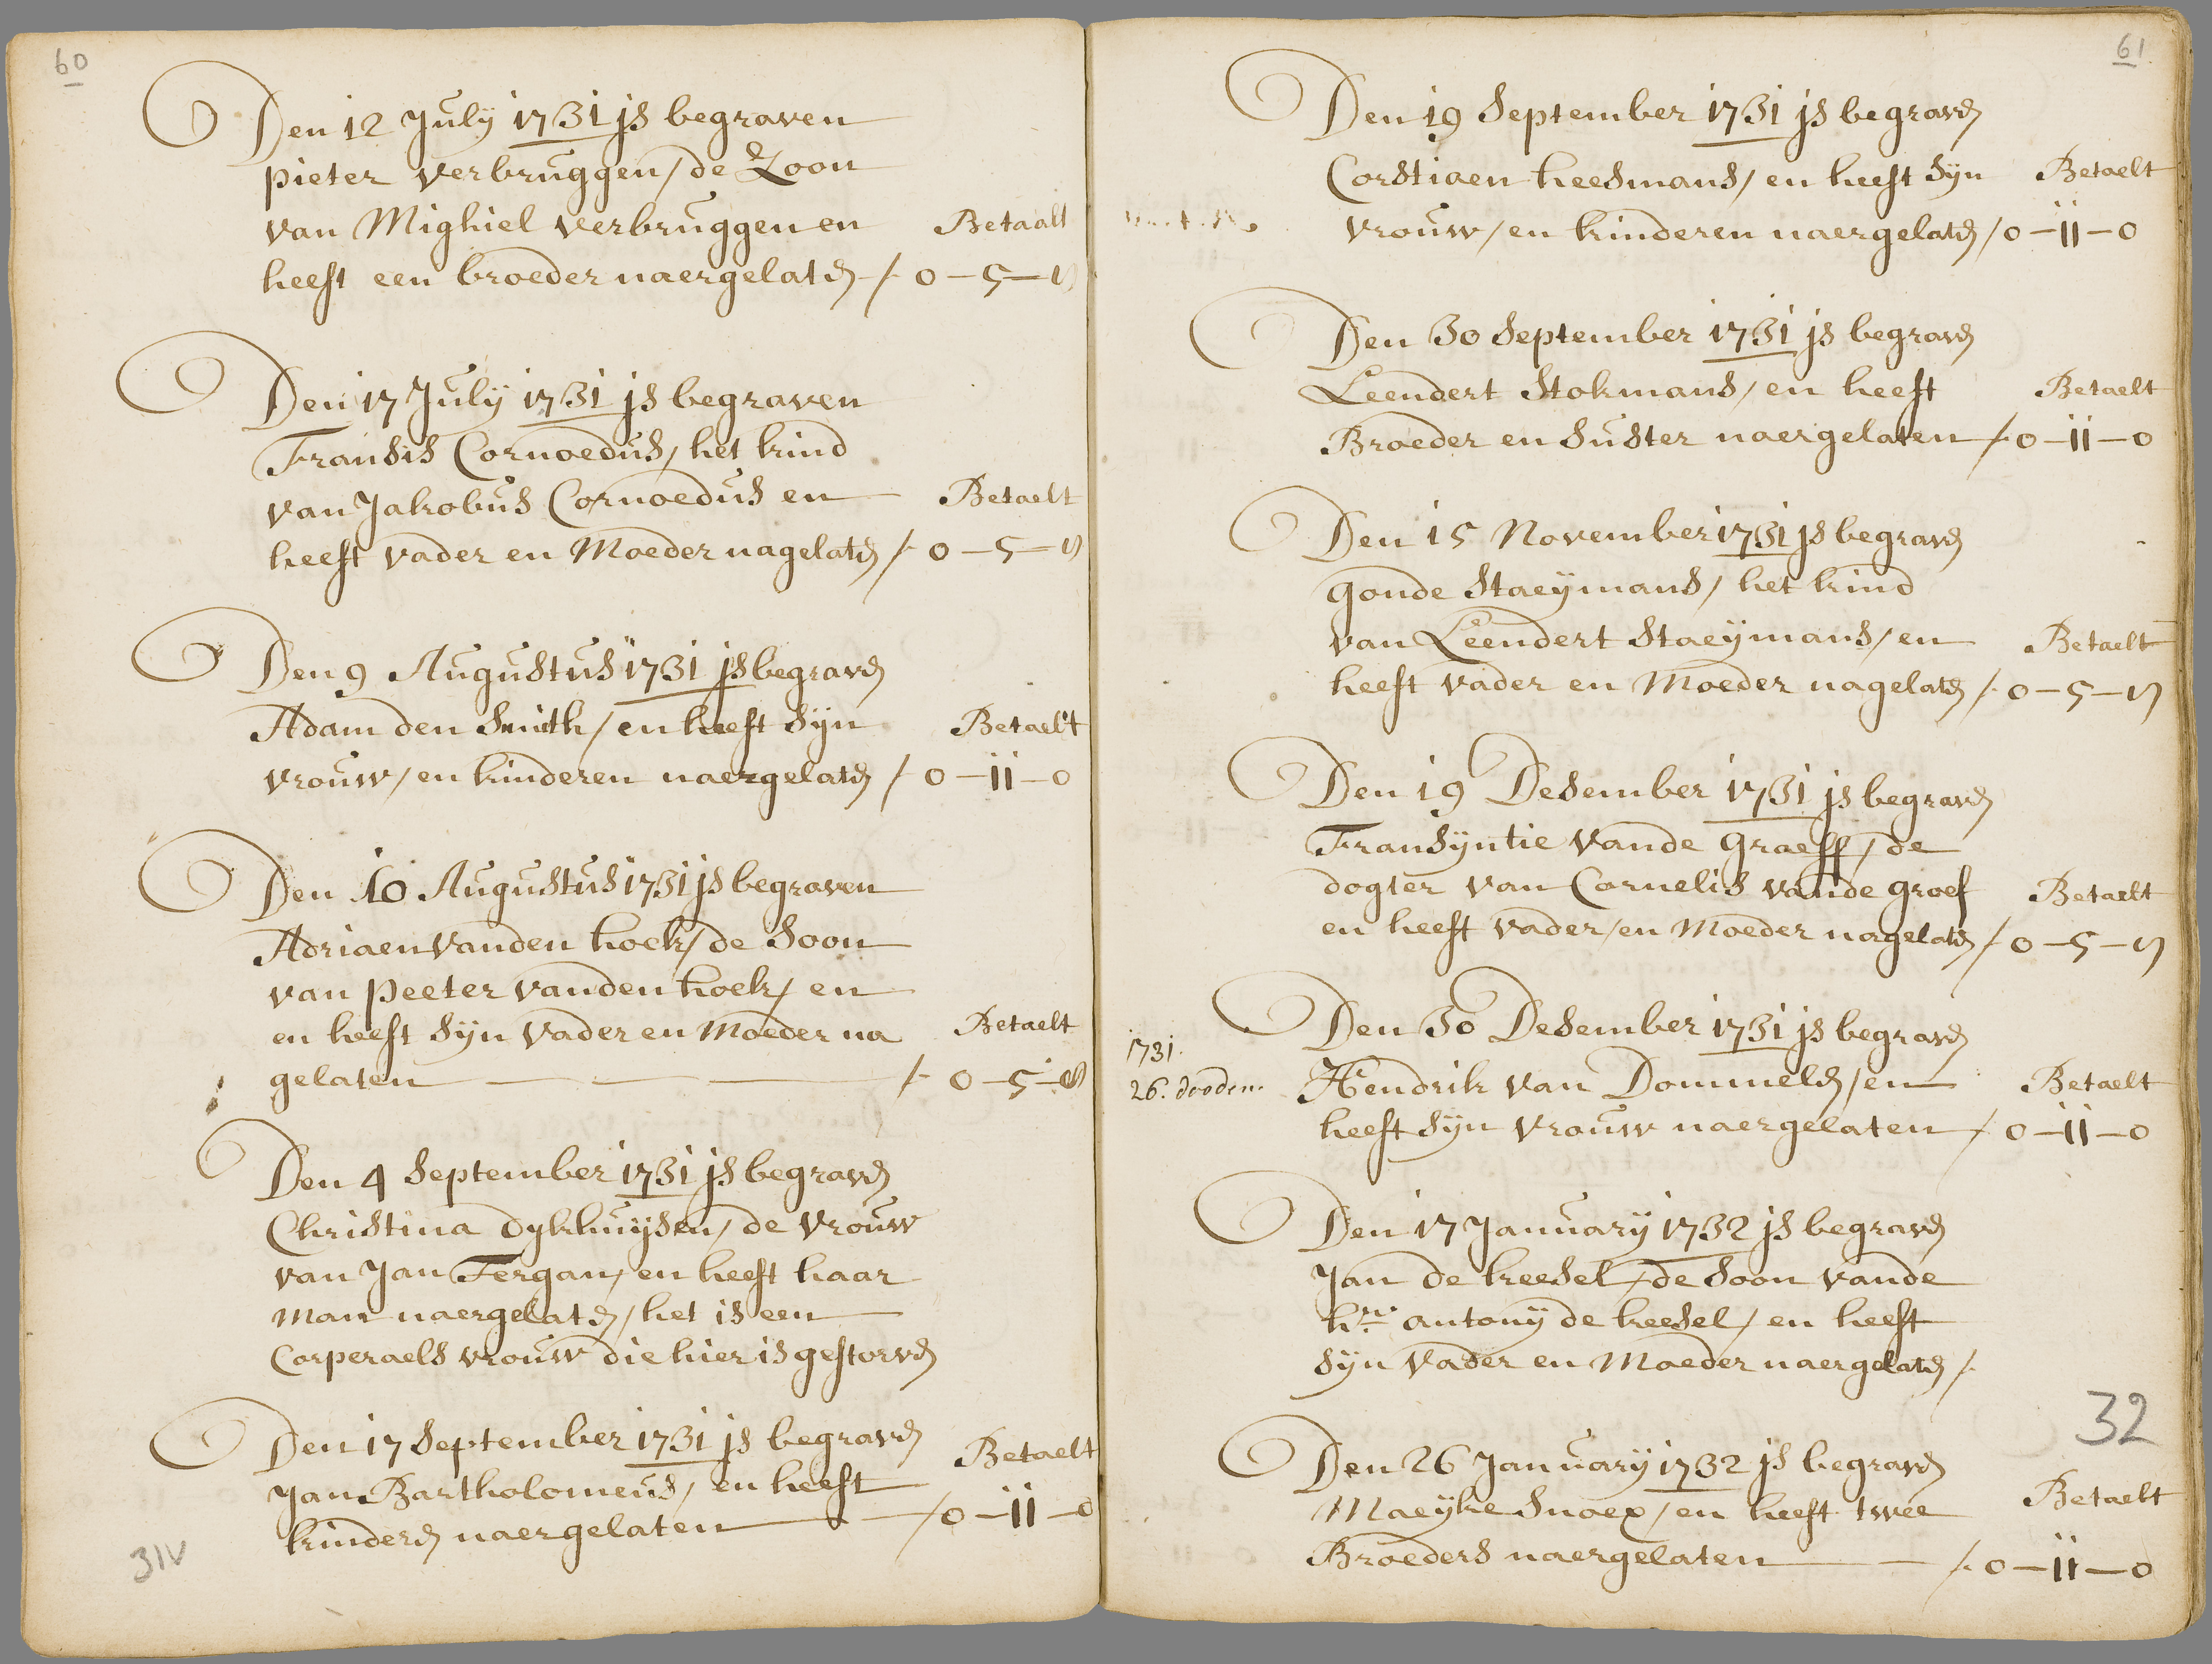 60
Den 12 July 1731 js begraven
pieter verbruggen / de Zoon
van Mighiel verbruggen en Betaalt
heeft een broeder naergelatē /. 0 – 5 – ყ
Den 17 July 1731 js begraven
Fransis Cornoedus, het kind
van Jakobus Cornoedus en Betaelt
heeft vader en Moeder nagelatē /. 0 – 5 – ყ
Den 9 Augustus 1731 js begravē
Adam den Smith / en heeft Syn Betaelt
vrouw / en kinderen naergelatē / 0 – 11 – 0
Den 10 Augustus 1731 js begraven
Adriaen vanden hoek / de Soon
van peeter vanden hoek / en
en heeft Syn vader en Moeder na Betaelt
gelaten /. 0 – 5 –
Den 4 September 1731 js begravē
Christina Dykhuysen / de vrouw
van Jan Fergan / en heeft haar
Man naergelatē / het is een
Corperaels vrouw die hier is gestorvē
Den 17 September 1731 js begravē Betaelt
Jan Bartholomeus / en heeft
kinderē naergelaten / 0 – 11 – 0
31v
61
Den 19 September 1731 js begravē
Corstiaen heesmans / en heeft Syn Betaelt
vrouw / en kinderen naergelatē / 0 – 11 – 0
Den 30 September 1731 js begravē
Leendert Stokmans / en heeft Betaelt
Broeder en Suster naergelaten /. 0 – 11 – 0
Den 15 November 1731 js begravē
gonde Staeymans / het kind
van Leendert Staeymans / en Betaelt
heeft vader en Moeder nagelatē /. 0 – 5 – ყ
Den 19 Desember 1731 js begravē
Fransyntie vande graeff / de
dogter van Cornelis vande groef Betaelt
en heeft vader / en Moeder nagelatē / 0 – 5 – ყ
Den 30 Desember 1731 js begravē
1731.
26. dooden. Hendrik van Dommelē / en Betaelt
heeft Syn vrouw naergelaten / 0 – 11 – 0
Den 17 January 1732 js begravē
Jan de keesel / de Soon vande
hr. antony de keesel / en heeft
Syn vader en Moeder naergelatē /.
32
Den 26 January 1732 js begravē
Maeyke Snoex / en heeft twee Betaelt
Broeders naergelaten /. 0 – 11 – 0